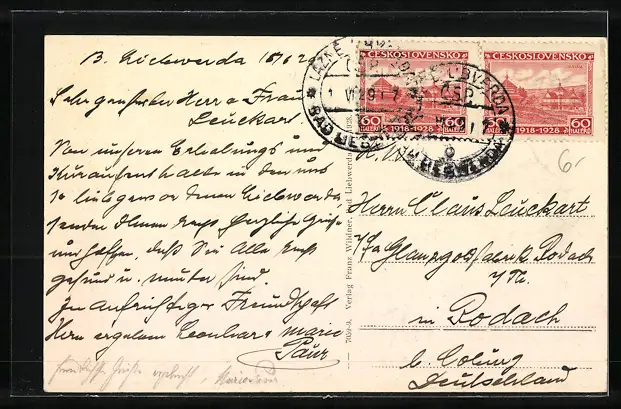 B. Liebwerda 15/6 29
Sehr geehrter Herr u. Frau
Leuckart.
Von unserem Erholungs und
Kuraufenthalte in dem uns
so liebgewordenen Liebwerda,
senden Ihnen recht herzliche Grüße
und hoffen, daß Sie Alle recht
gesund u. munter sind.
In aufrichtiger Freundschaft
Ihre ergebenen Leonhard & Marie
Paur
Marie Paur
7020-9. Verlag Franz Wildner, Bad Liebwerda
ČESKOSLOVENSKO
60 1918-1928 60
HALÉŘŮ
ČESKOSLOVENSKO
60 1918-1928 60
HALÉŘŮ
LÁZNĚ LIBVERDA
ČSR
BAD LIEBWERDA
Herrn Claus Leuckart
i/Fa Glanzgoldfabrik Rodach
in Rodach
b. Coburg
Deutschland
6.-